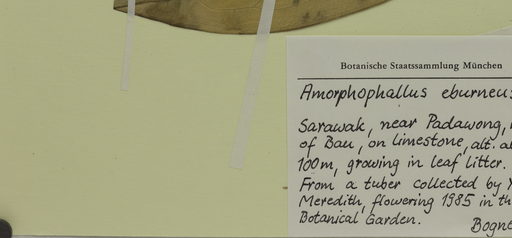 Botanische Staatssammlung München
Amorphophallus eburneus
Sarawak, near Padawong,
of Bau, on limestone, alt.
100m, growing in leaf litter.
From a tuber collected by
Meredith, flowering 1985 in
Botanical Garden.